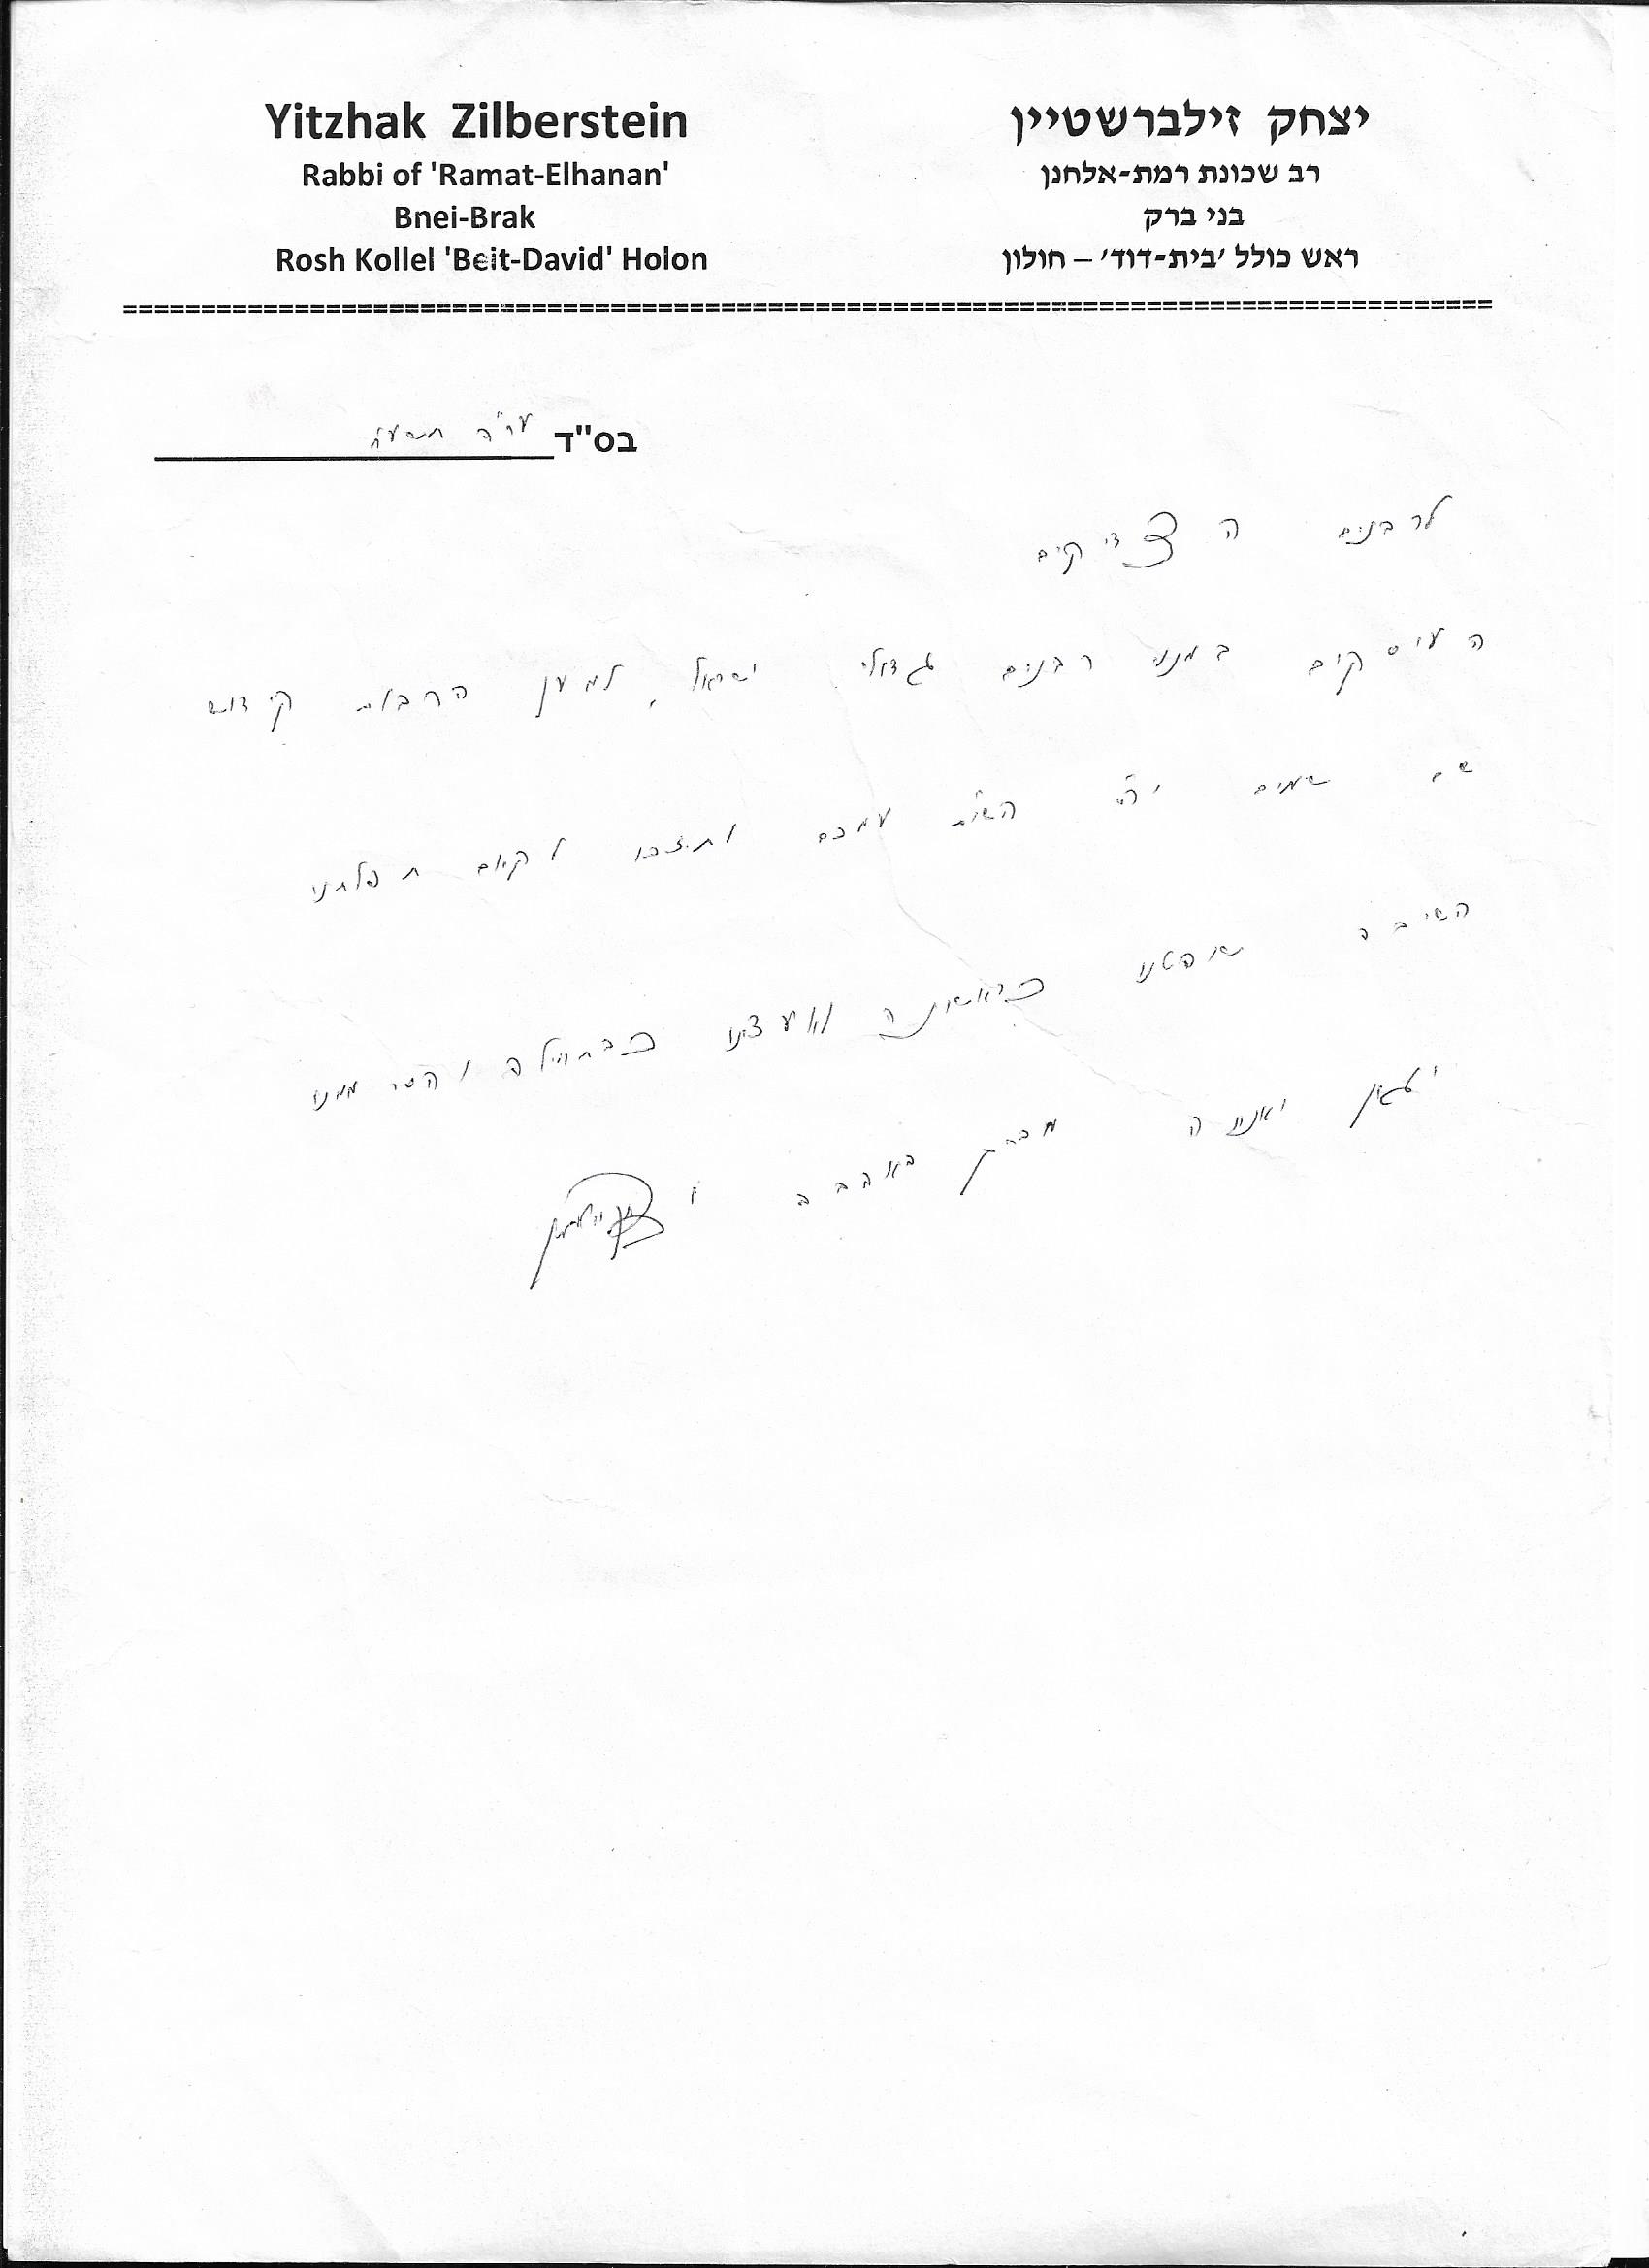 Yitzhak Zilberstein
Rabbi of 'Ramat-Elhanan'
Bnei-Brak
Rosh Kollel 'Beit-David' Holon
יצחק זילברשטיין
רב שכונת רמת-אלחנן
בני ברק
ראש כולל 'בית-דוד' – חולון
בס"ד ער"ה
לרבנים הצדיקים
העוסקים במנוי רבנים גדולי ישראל, למען הרבות קידוש
שם שמים יהי השי"ת עמכם ותזכו לקיום תפלתנו
השיבה שופטנו כבראשונה ויועצינו כבתחילה והסר ממנו
יגון ואנחה מברך באהבה